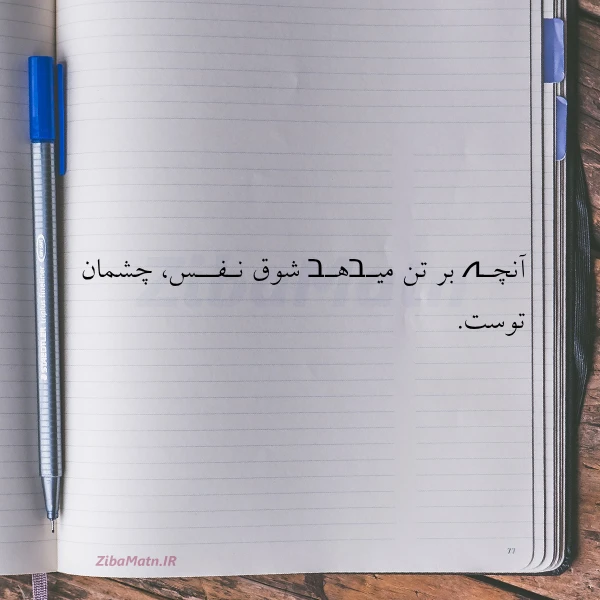 آنچـه بر تن میـدهـد شوق نـفـس، چشمان
توست.
ZibaMatn.IR
77